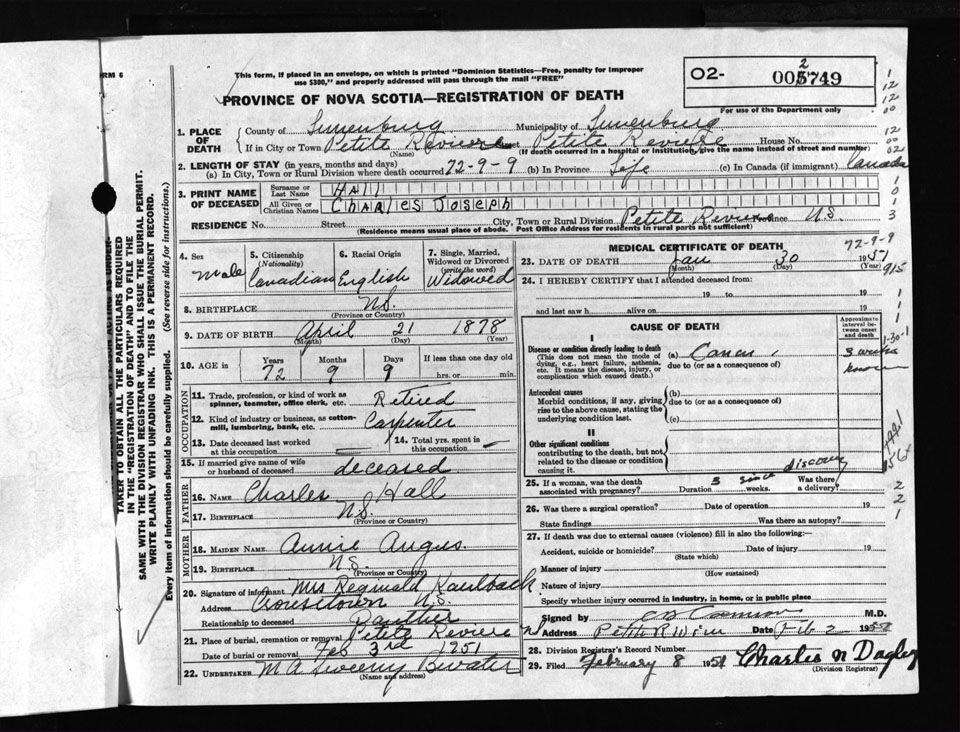 RM 6
This form, if placed in an envelope, on which is printed "Dominion Statistics—Free, penalty for improper
use $300," and properly addressed will pass through the mail "FREE"
O2- 005749
2
For use of the Department only
PROVINCE OF NOVA SCOTIA—REGISTRATION OF DEATH
1. PLACE OF DEATH
County of Lunenburg Municipality of Lunenburg
If in City or Town Petite Reviere Street Petite Reviere House No.
(Name) (If death occurred in a hospital or institution, give the name instead of street and number)
2. LENGTH OF STAY (in years, months and days)
(a) In City, Town or Rural Division where death occurred 72-9-9 (b) In Province Life (c) In Canada (if immigrant) Canada
3. PRINT NAME OF DECEASED
Surname or Last Name Hall
All Given or Christian Names Charles Joseph
RESIDENCE No. Street City, Town or Rural Division Petite Reviere Province N.S.
(Residence means usual place of abode. Post Office Address for residents in rural parts not sufficient)
4. Sex Male
5. Citizenship (Nationality) Canadian
6. Racial Origin English
7. Single, Married, Widowed or Divorced (write the word) Widowed
8. BIRTHPLACE N.S.
(Province or Country)
9. DATE OF BIRTH April 21 1878
(Month) (Day) (Year)
10. AGE in Years Months Days If less than one day old
72 9 9 hrs. or min.
OCCUPATION
11. Trade, profession, or kind of work as spinner, teamster, office clerk, etc. Retired
12. Kind of industry or business, as cotton-mill, lumbering, bank, etc. Carpenter
13. Date deceased last worked at this occupation
14. Total yrs. spent in this occupation
15. If married give name of wife or husband of deceased deceased
FATHER
16. NAME Charles Hall
17. BIRTHPLACE N.S.
(Province or Country)
MOTHER
18. MAIDEN NAME Annie Angus
19. BIRTHPLACE N.S.
(Province or Country)
20. Signature of informant Mrs Reginald Kaulback
Address Crousetown N.S.
Relationship to deceased
21. Place of burial, cremation or removal Petite Reviere
Date of burial or removal Feb 3rd 1951
22. UNDERTAKER M A Sweeny
(Name and address)
MEDICAL CERTIFICATE OF DEATH
72-9-9
23. DATE OF DEATH Jan 30 1951
(Month) (Day) (Year)
24. I HEREBY CERTIFY that I attended deceased from:
19 to 19
and last saw h alive on 19
CAUSE OF DEATH
Approximate interval between onset and death
I
Disease or condition directly leading to death
(This does not mean the mode of dying, e.g., heart failure, asthenia, etc. It means the disease, injury, or complication which caused death.)
(a) Cancer 3 weeks
due to (or as a consequence of) known
Antecedent causes
Morbid conditions, if any, giving rise to the above cause, stating the underlying condition last.
(b)
due to (or as a consequence of)
(c)
II
Other significant conditions
contributing to the death, but not related to the disease or condition causing it.
25. If a woman, was the death associated with pregnancy? Duration 3 weeks. since discovery Was there a delivery?
26. Was there a surgical operation? Date of operation 19
State findings Was there an autopsy?
27. If death was due to external causes (violence) fill in also the following:—
Accident, suicide or homicide? Date of injury 19
(State which)
Manner of injury
(How sustained)
Nature of injury
Specify whether injury occurred in industry, in home, or in public place
Signed by M.D.
Address Petite Date Feb 2 195
28. Division Registrar's Record Number
29. Filed February 8 1951 Charles N Dagley
(Division Registrar)
TAKER TO OBTAIN ALL THE PARTICULARS REQUIRED
IN THE "REGISTRATION OF DEATH" AND TO FILE THE
SAME WITH THE DIVISION REGISTRAR WHO SHALL ISSUE THE BURIAL PERMIT.
WRITE PLAINLY WITH UNFADING INK. THIS IS A PERMANENT RECORD.
Every item of information should be carefully supplied. (See reverse side for instructions.)